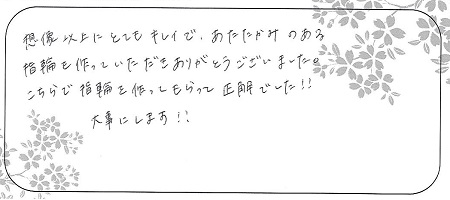 想像以上にとてもキレイで、あたたかみのある
指輪を作っていただきありがとうございました。
こちらで指輪を作ってもらって正解でした!!
大事にします!!